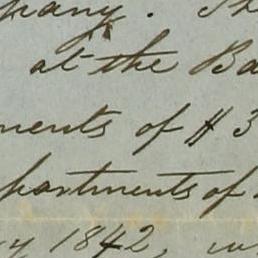 pany. Th
at the Ba
ments of $3
partments of
y 1842, w